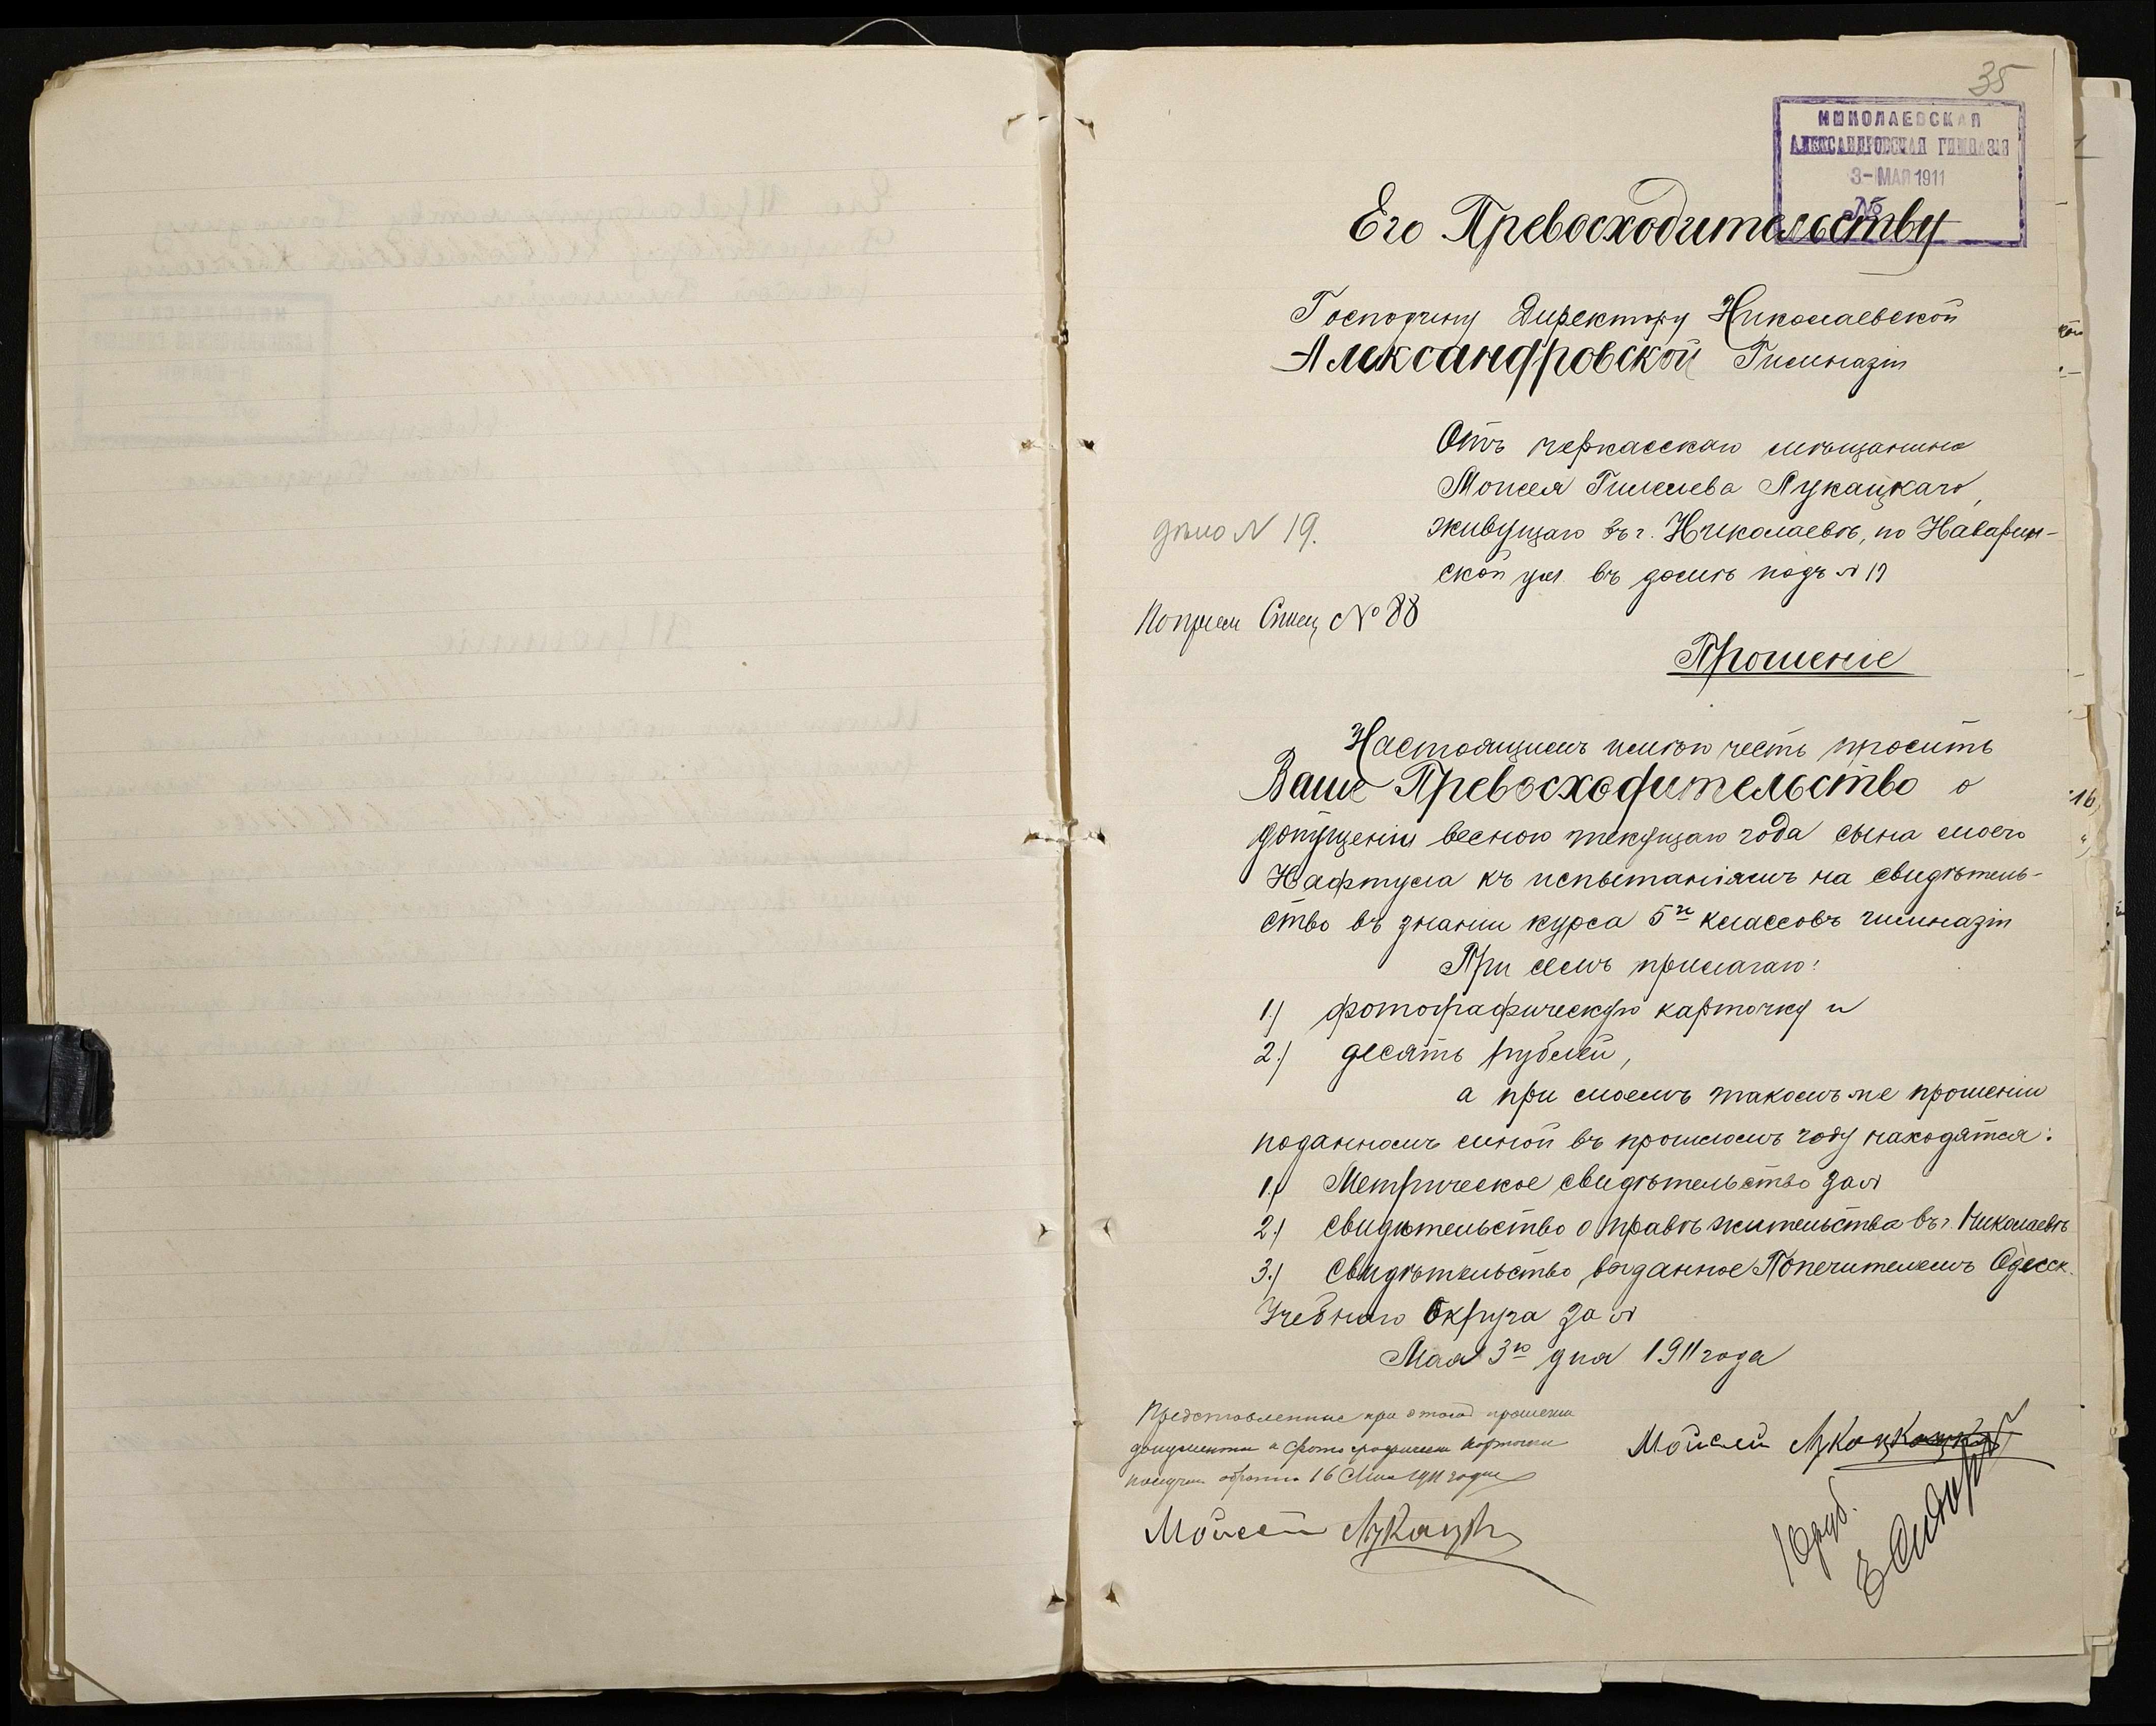 35
НИКОЛАЕВСКАЯ
АЛЕКСАНДРОВСКАЯ ГИМНАЗІЯ
3- МАЯ 1911
№
Его Превосходительству
Господину Директору Николаевской
Александровской Гимназіи
Отъ черкасскаго мѣщанина
Моисея Гилелева Лукацкаго,
живущаго въ г. Николаевѣ, по Наварин-
ской ул. въ домѣ подъ №
дѣло N 19.
№ 88
Прошеніе
Настоящимъ имѣю честь просить
Ваше Превосходительство о
допущеніи весною текущаго года сына моего
Нафтула къ испытаніямъ на свидѣтель-
ство въ знаніи курса 5и классовъ гимназіи
При семъ прилагаю:
1) фотографическую карточку и
2) десять рублей,
а при моемъ такомъ же прошеніи
поданномъ мной въ прошломъ году находятся:
1) Метрическое свидѣтельство за №
2) свидѣтельство о правѣ жительства въ г. Николаевѣ
3) свидѣтельство выданное Попечителемъ Одесск.
Учебнаго Округа за №
Мая 3го дня 1911 года
Представленные при этомъ прошеніи
документы и фотографическ карточки
получилъ обратно 16 Мая 1911 года
Мойсей Лукацкій
Мойсей Лукацкій
10 руб.